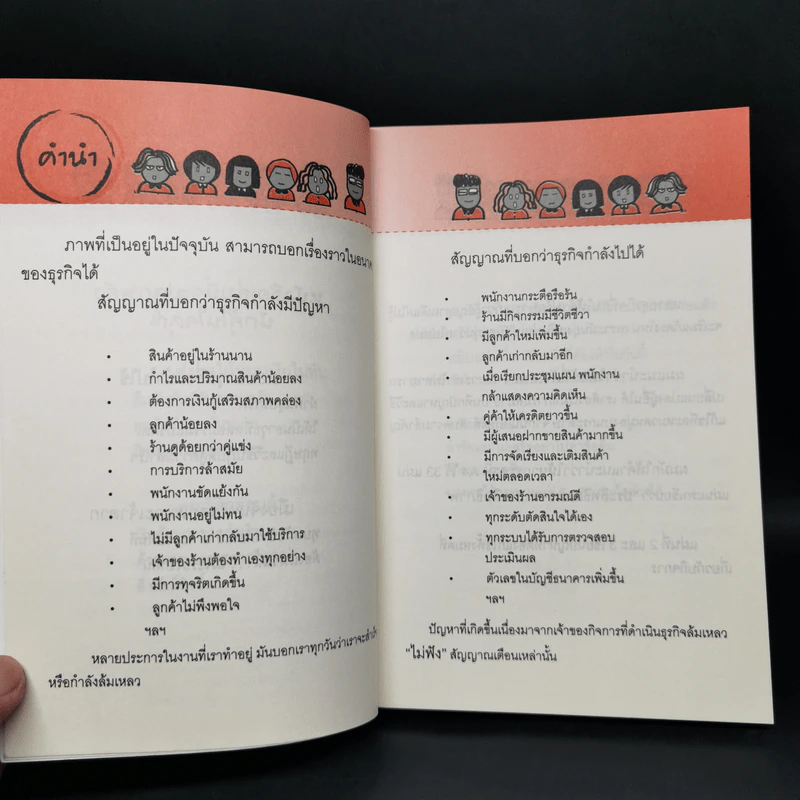 คำนำ
ภาพที่เป็นอยู่ในปัจจุบัน สามารถบอกเรื่องราวในอนาค
ของธุรกิจได้
สัญญาณที่บอกว่าธุรกิจกำลังมีปัญหา
• สินค้าอยู่ในร้านนาน
• กำไรและปริมาณสินค้าน้อยลง
• ต้องการเงินกู้เสริมสภาพคล่อง
• ลูกค้าน้อยลง
• ร้านดูด้อยกว่าคู่แข่ง
• การบริการล้าสมัย
• พนักงานขัดแย้งกัน
• พนักงานอยู่ไม่ทน
• ไม่มีลูกค้าเก่ากลับมาใช้บริการ
• เจ้าของร้านต้องทำเองทุกอย่าง
• มีการทุจริตเกิดขึ้น
• ลูกค้าไม่พึงพอใจ
ฯลฯ
หลายประการในงานที่เราทำอยู่ มันบอกเราทุกวันว่าเราจะสำเร็
หรือกำลังล้มเหลว
สัญญาณที่บอกว่าธุรกิจกำลังไปได้
• พนักงานกระตือรือร้น
ร้านมีกิจกรรมมีชีวิตชีวา
• มีลูกค้าใหม่เพิ่มขึ้น
• ลูกค้าเก่ากลับมาอีก
• เมื่อเรียกประชุมแผน พนักงาน
กล้าแสดงความคิดเห็น
• คู่ค้าให้เครดิตยาวขึ้น
• มีผู้เสนอฝากขายสินค้ามากขึ้น
• มีการจัดเรียงและเติมสินค้า
ใหม่ตลอดเวลา
• เจ้าของร้านอารมณ์ดี
• ทุกระดับตัดสินใจได้เอง
• ทุกระบบได้รับการตรวจสอบ
ประเมินผล
• ตัวเลขในบัญชีธนาคารเพิ่มขึ้น
ฯลฯ
ปัญหาที่เกิดขึ้นเนื่องมาจากเจ้าของกิจการที่ดำเนินธุรกิจล้มเหลว
"ไม่ฟัง" สัญญาณเตือนเหล่านั้น